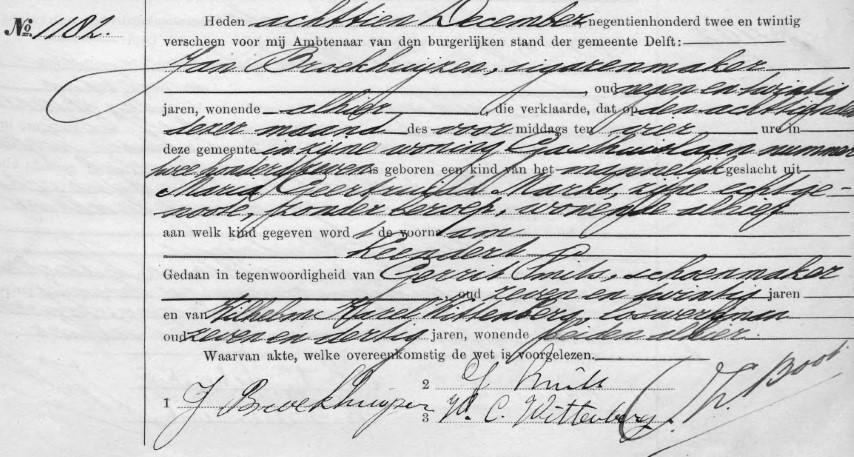 No. 1182.
Heden achttien December negentienhonderd twee en twintig
verscheen voor mij Ambtenaar van den burgerlijken stand der gemeente Delft:
Jan Broekhuijzen, sigarenmaker
, oud negen en twintig
jaren, wonende alhier, die verklaarde, dat op den achttienden
dezer maand des voor middags ten vier ure in
deze gemeente in zijne woning Gasthuislaan nummer
twee honderd zeven is geboren een kind van het mannelijk geslacht uit
Maria Geertruida Marks, zijne echtge-
noote, zonder beroep, wonende alhier
aan welk kind gegeven word t de voornaam
Leendert
Gedaan in tegenwoordigheid van Gerrit Smits, schoenmaker
, oud zeven en twintig jaren
en van Wilhelm Karel Wittenberg, loswerkman
oud zeven en dertig jaren, wonende beiden alhier.
Waarvan akte, welke overeenkomstig de wet is voorgelezen.
1 J Broekhuijzen
2 G Smits
3 W. C. Wittenberg.
Th. Boot